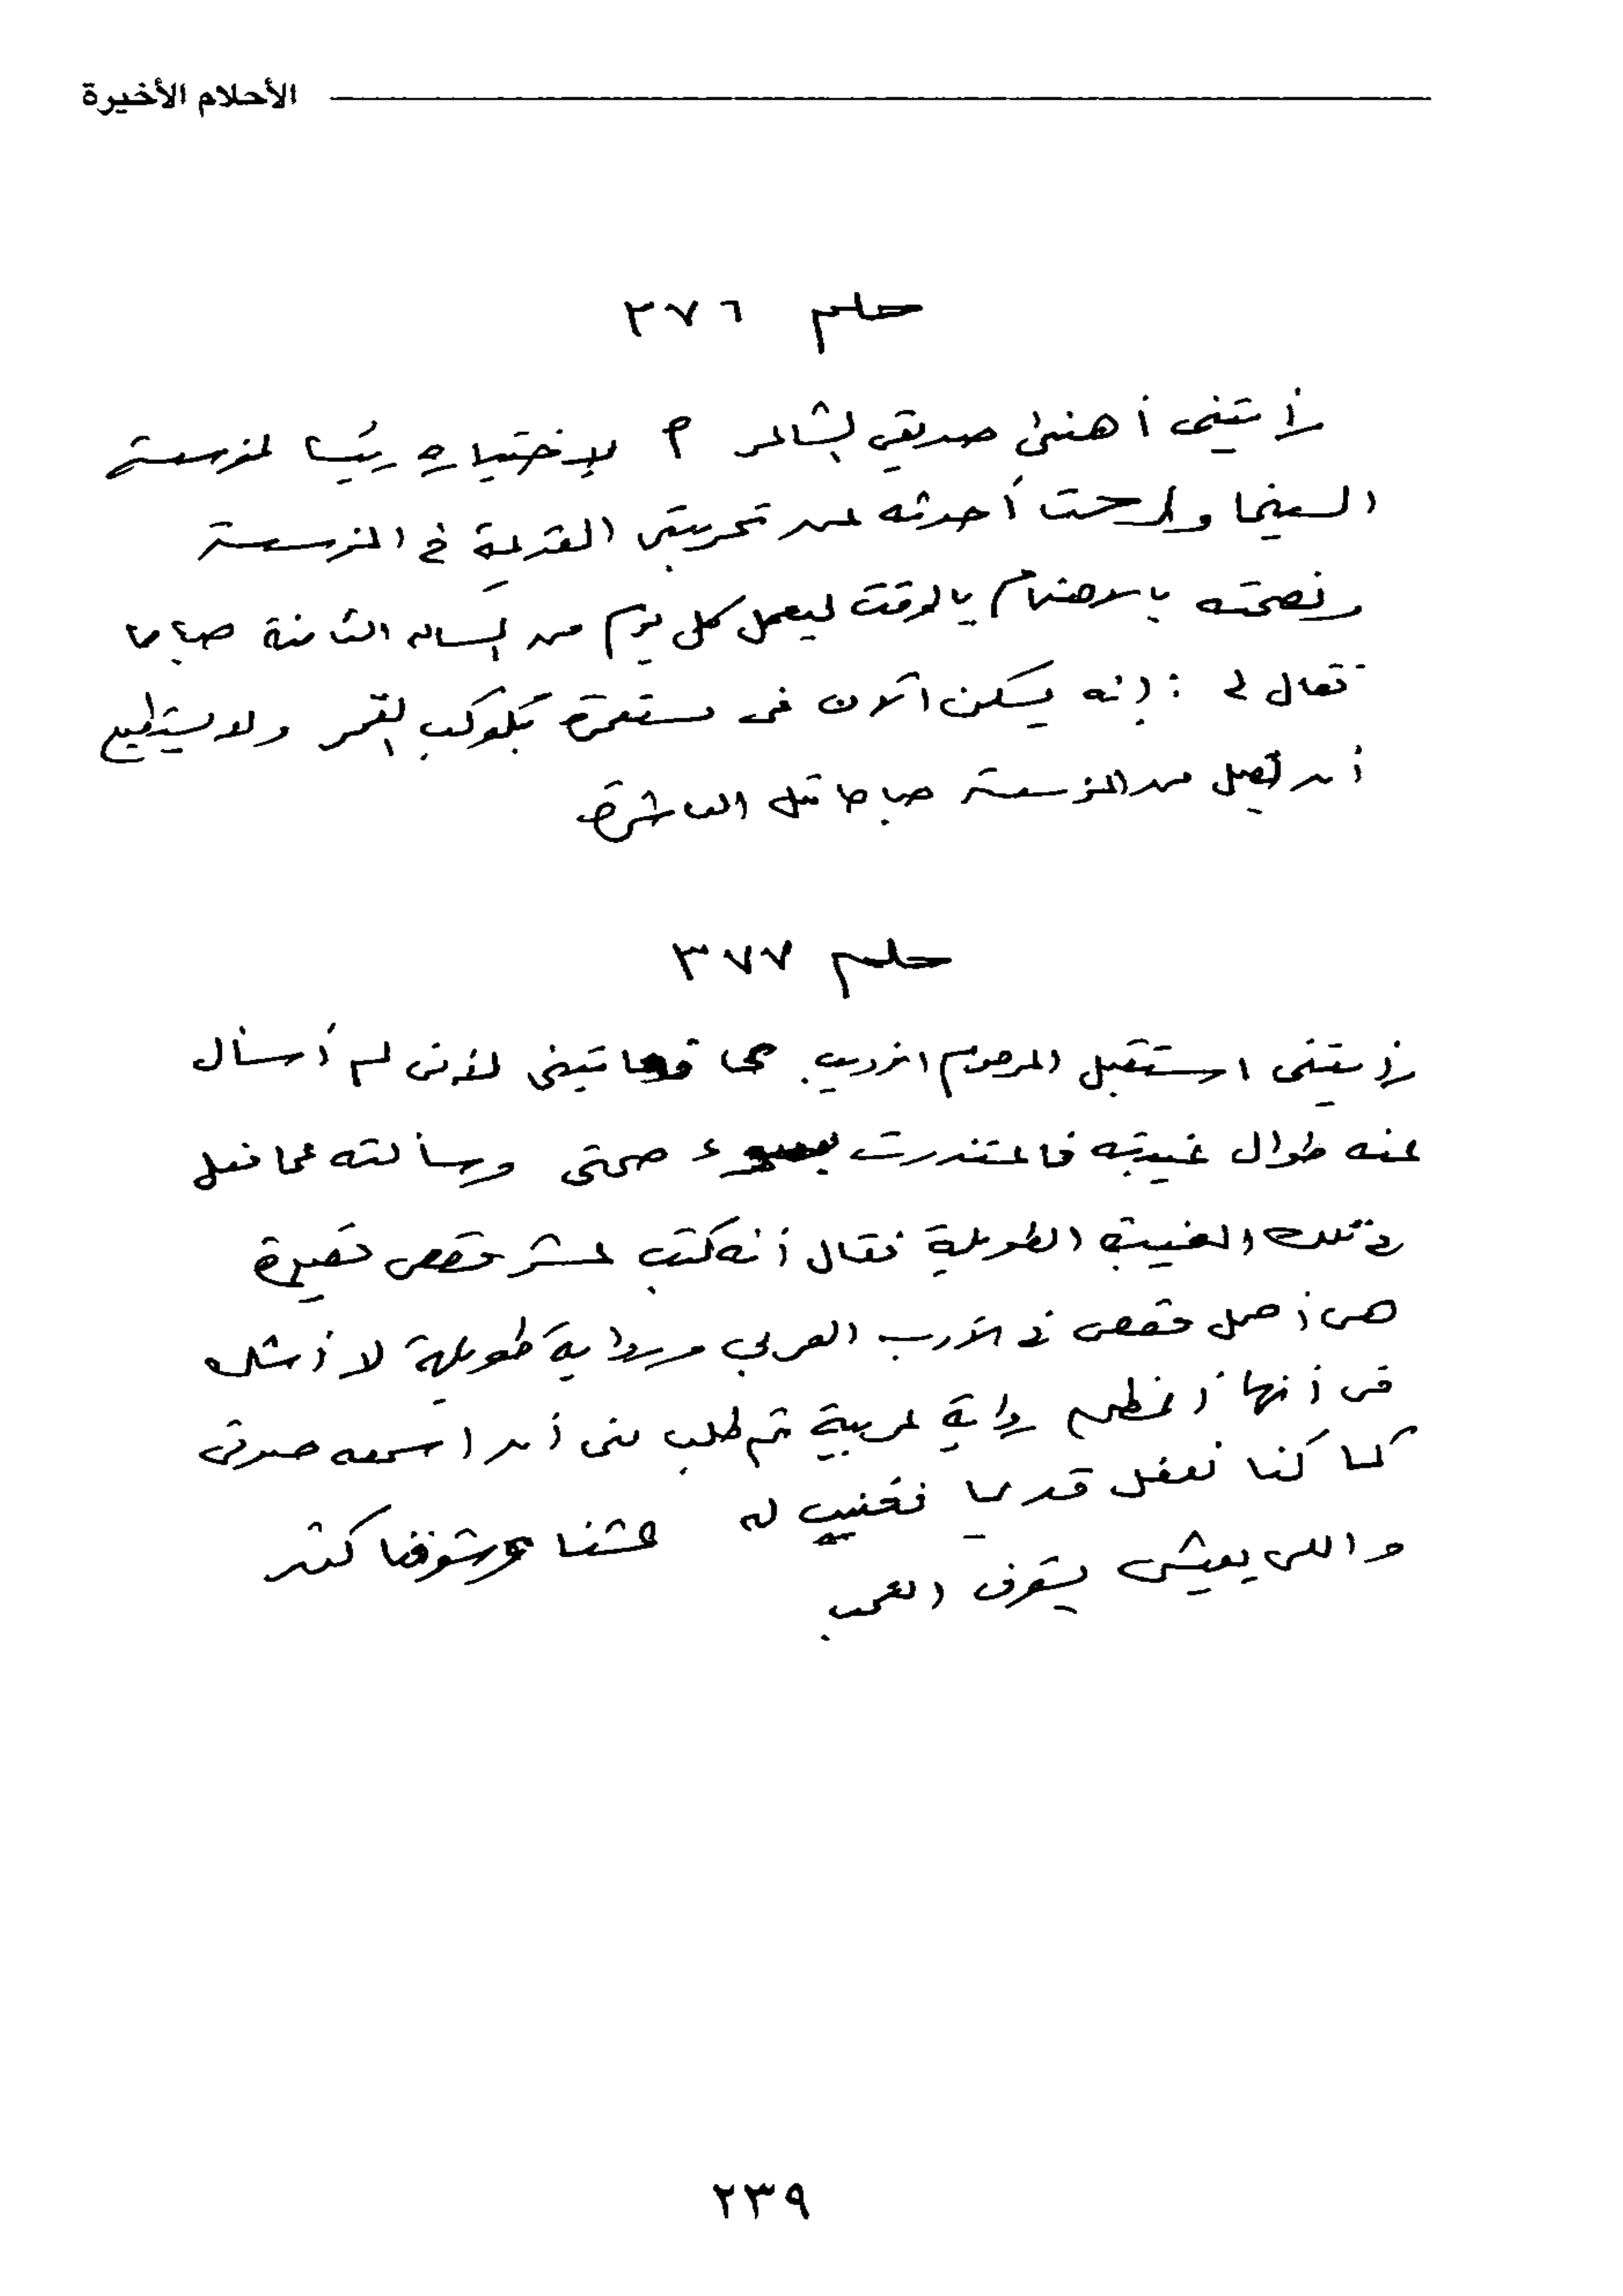 الأحلام الأخيرة
حلم ٣٧٦
رأيتنى أهنئ صديقي الشاعر م لاختياره رئيسا لمؤسسة
السينما ورحت أحدثه عن تجربتى القديمة فى المؤسسة
ونصحته بالاهتمام بالوقت ليعمل كل يوم من الساعة الثامنة صباحا
فقال لى : إنه يسكن الآن فى مستعمرة بكوكب القمر ولا يستطيع
أن يصل من المؤسسة صباحا قبل العاشرة
حلم ٣٧٧
رأيتنى استقبل المرحوم الأديب فعاتبنى لأنى لم أسأل
عنه طوال غيبته فاعتذرت بسوء صحتى وسألته عما فعل
فى تلك الغيبة الطويلة فقال أنه كتب عشر قصص قصيرة
هى أجمل قصص فى الأدب العربى ورواية طويلة لا أشك
فى أنها أعظم رواية عربية ثم طلب منى أن اسمعه صوتى
كما كنا نفعل قديما فغنيت له عشنا وشوفنا كتير
واللى يعيش يشوف العجب
٢٣٩